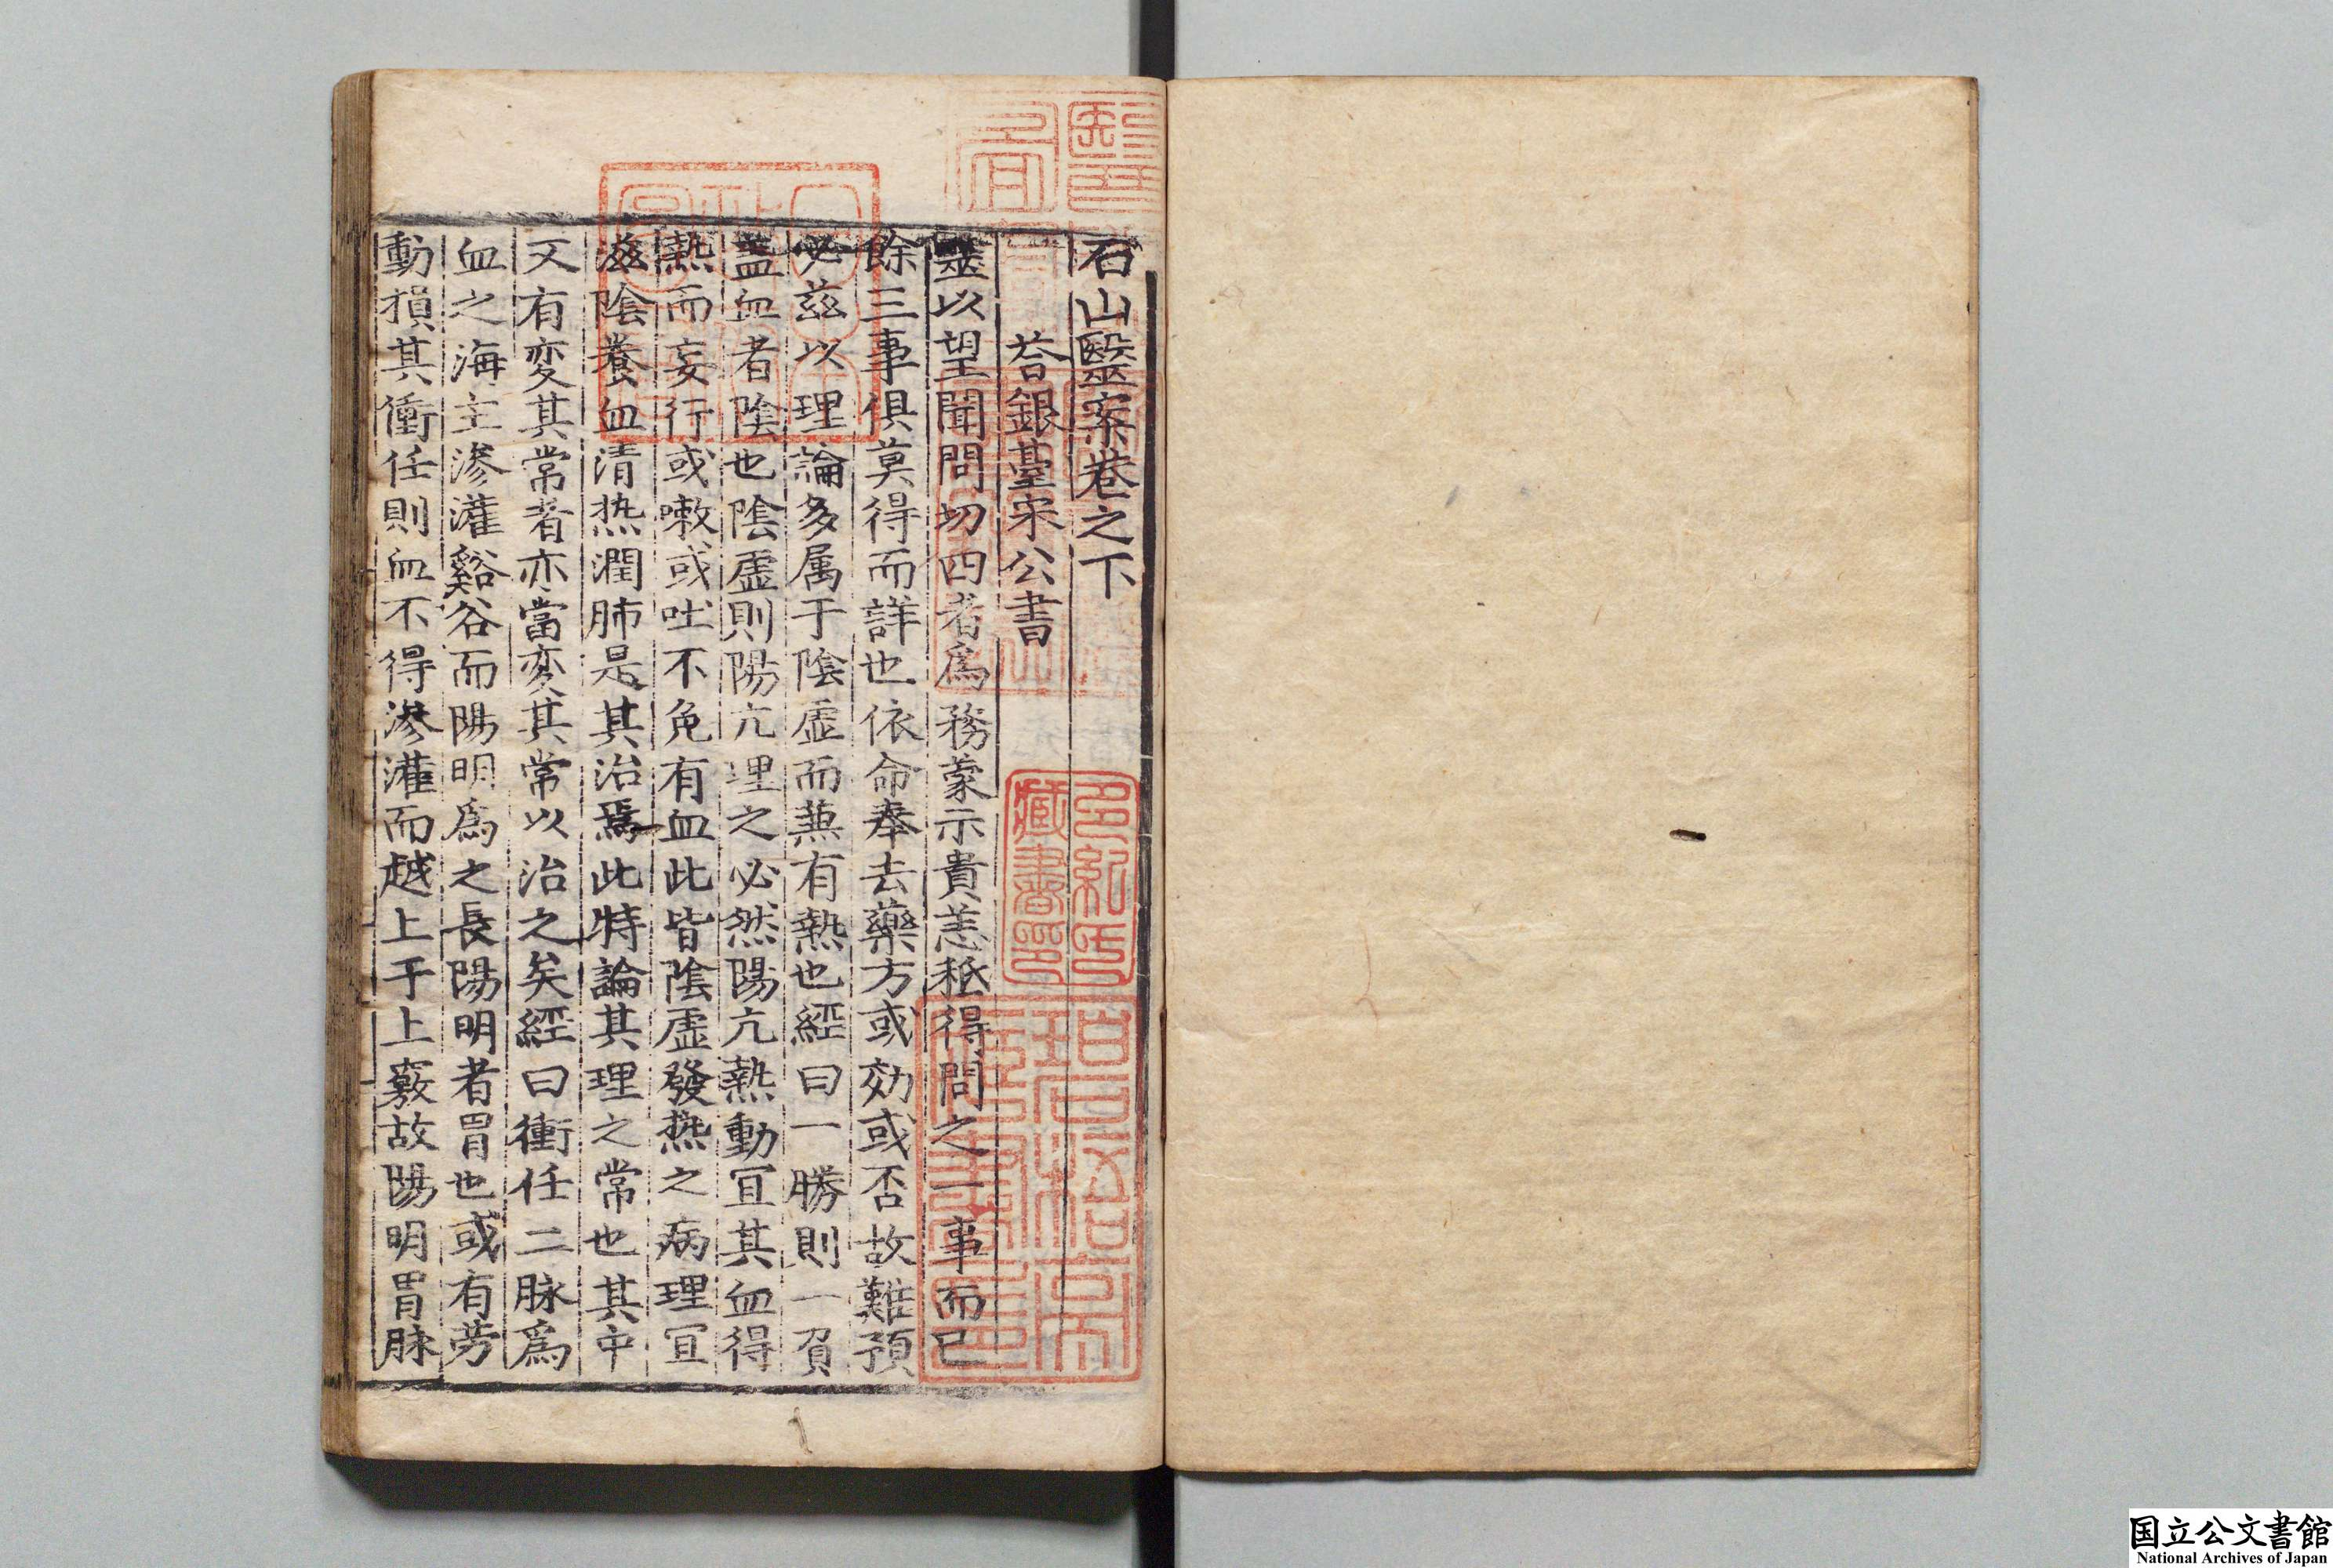 石山毉案巻之下
荅銀䑓宋公書
毉以望聞問切四者爲務蒙示貴恙秪得問之一事而已
餘三事俱莫得而詳也依命奉去藥方或効或否故難預
必兹以理論多属于隂虚而蒸有熱也經曰一勝則一負
盖血者隂也隂虚則陽亢理之必然陽亢熱動冝其血得
熱而妄行或嗽或吐不免有血此皆隂虚發热之病理冝
滋隂養血清热潤肺是其治焉此特論其理之常也其中
又有変其常者亦當変其常以治之矣經曰衝任二脉爲
血之海主滲灌谿谷而陽明爲之長陽明者胃也或有劳
動損其衝任則血不得滲灌而越上于上竅故陽明胃脉
多紀氏藏書印
国立公文書館
National Archives of Japan